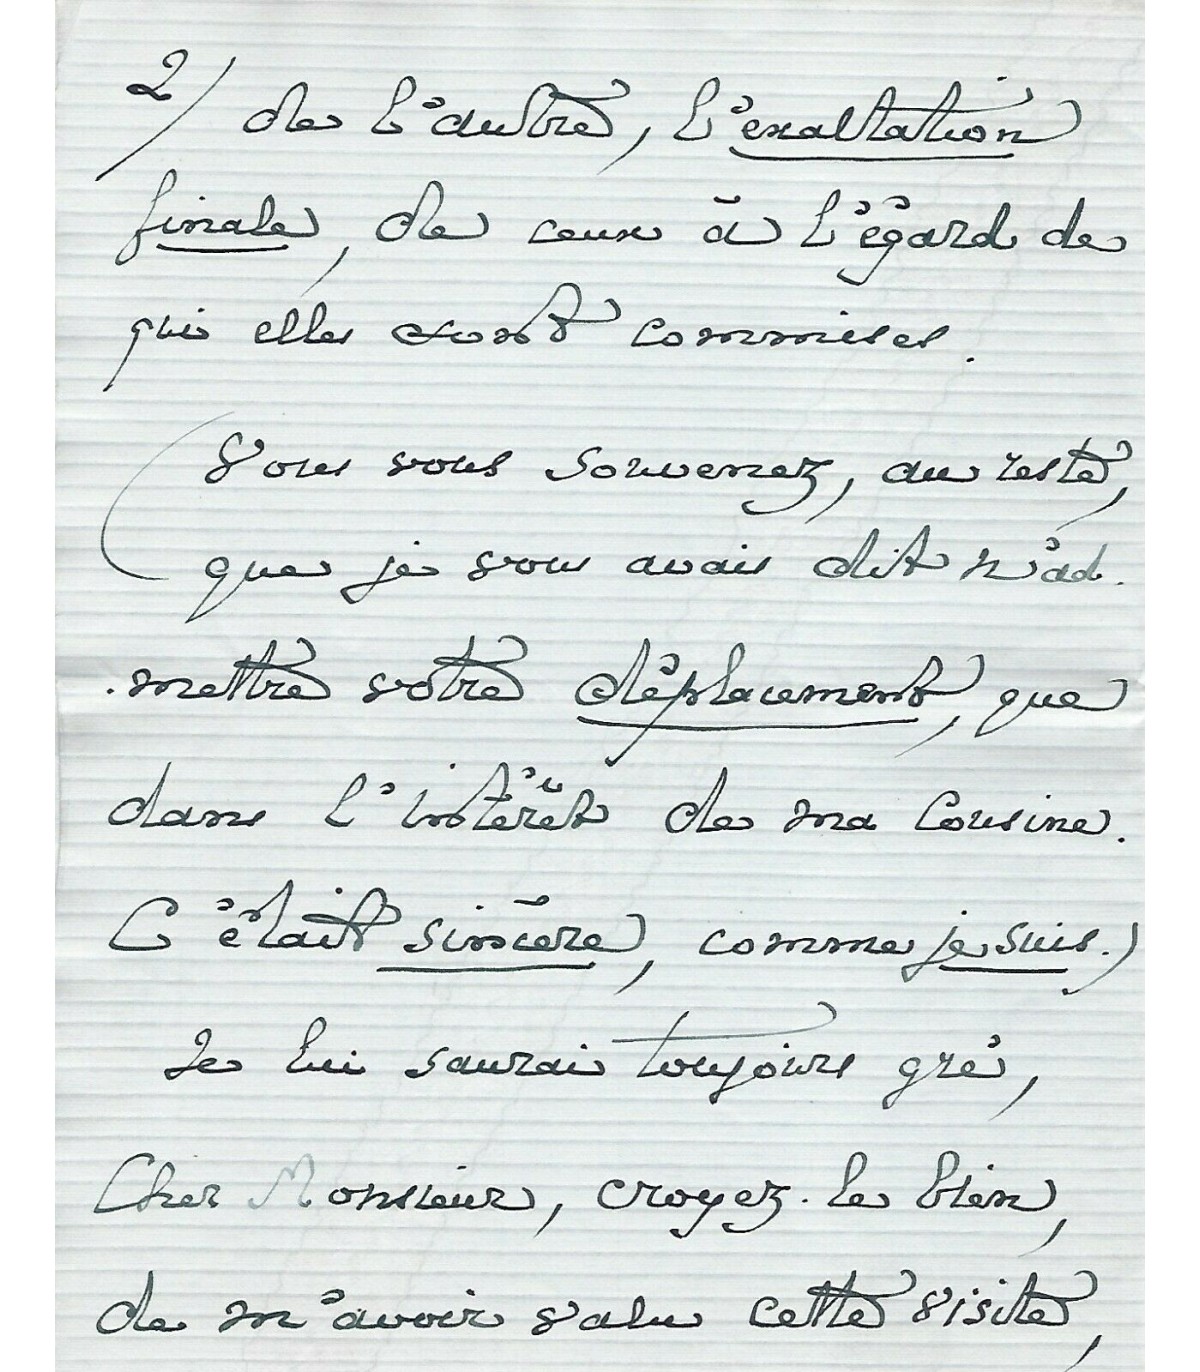 2/ de l'autre, l'exaltation
finale, de ceux à l'égard de
qui elles sont commises.
(Vous vous souvenez, au reste,
que je vous avais dit n'ad-
-mettre votre déplacement, que
dans l'intérêt de ma Cousine.
C'était sincère, comme je suis.)
Je lui saurai toujours gré,
Cher Monsieur, croyez-le bien,
de m'avoir valu cette visite,